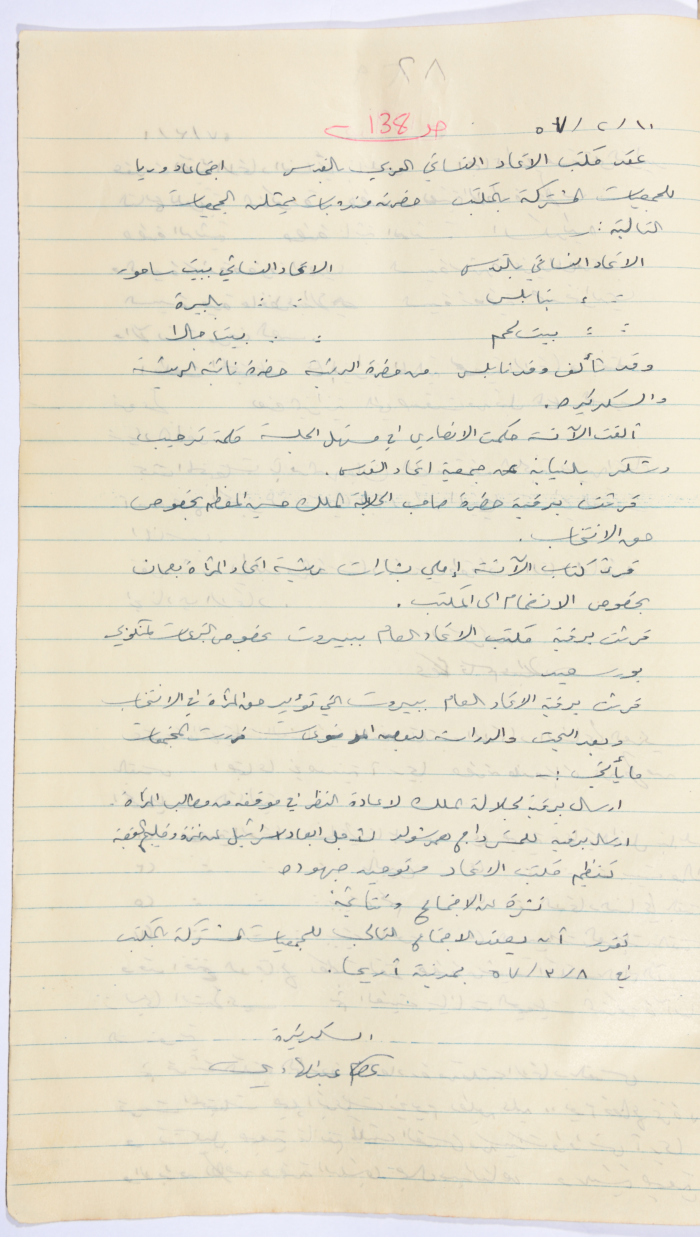 ٢٨
ص 138
١٠/ ٢/ ٥٧
عقد مكتب الاتحاد النسائي العربي بالقدس اجتماعا دوريا
للجمعيات المشتركة بالمكتب حضرته مندوبات يمثلن الجمعيات
التالية :ـ
الاتحاد النسائي بالقدس الاتحاد النسائي ببيت ساحور
" " بنابلس " " بالبيرة
" " بيت لحم " " بيت جالا
وقد تألف وفد نابلس من حضرة الرئيسة حضرة نائبة الرئيسة
والسكرتيرة .
ألقت الآنسة حكمت الانصاري في مستهل الجلسة كلمة ترحيب
وشكر بالنيابة عن جمعية اتحاد القدس .
قرئت برقية حضرة صاحب الجلالة الملك حسين المعظم بخصوص
حق الانتخاب .
قرئ كتاب الآنسة إملي بشارات رئيسة اتحاد المرأة بعمان
بخصوص الانضمام الى المكتب .
قرئت برقية مكتب الاتحاد العام ببيروت بخصوص التبرعات لمنكوبي
بور سعيد
قرئت برقية الاتحاد العام ببيروت التي تؤيد حق المرأة في الانتخاب
وبعد البحث والدراسة لبعض المواضيع قررت المجتمعات
ما يأتي :ـ
ارسال برقية لجلالة الملك لاعادة النظر في موقفه من مطالب المرأة .
ارسال برقية للمستر داج همرشولد لأجل ابعاد اسرائيل عن غزة وخليج العقبة
تنظيم مكتب الاتحاد وتوحيد جهوده
نشرة عن الاجتماع ونتائجه
تقرر أن يعقد الاجتماع التالي للجمعيات المشتركة بالمكتب
في ٨/ ٣/ ٥٧ بمدينة أريحا .
السكرتيرة
عصام عبد الهادي